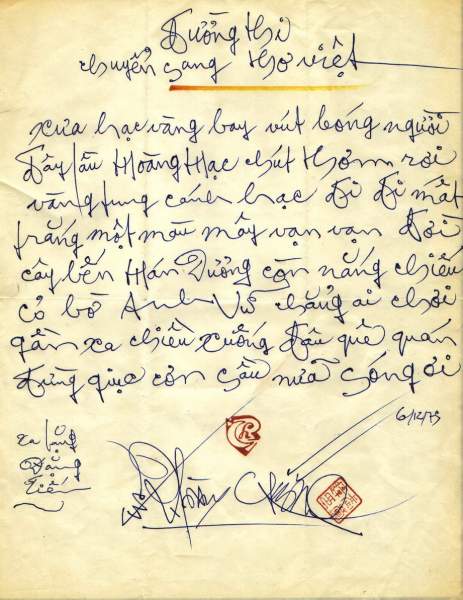 Đường thi
chuyển sang thơ việt
xưa hạc vàng bay vút bóng người
Đây lầu Hoàng Hạc chút thơm rơi
vàng tung cánh hạc đi đi mất
trắng một màu mây vạn vạn đời
cây bến Hán Dương còn nắng chiếu
cỏ bờ Anh Vũ chẳng ai chơi
gần xa chiều xuống đâu quê quán
đừng giục cơn sầu nữa sóng ơi
6/12/73
tặng
Đặng
Tiến
Hoàng Chương